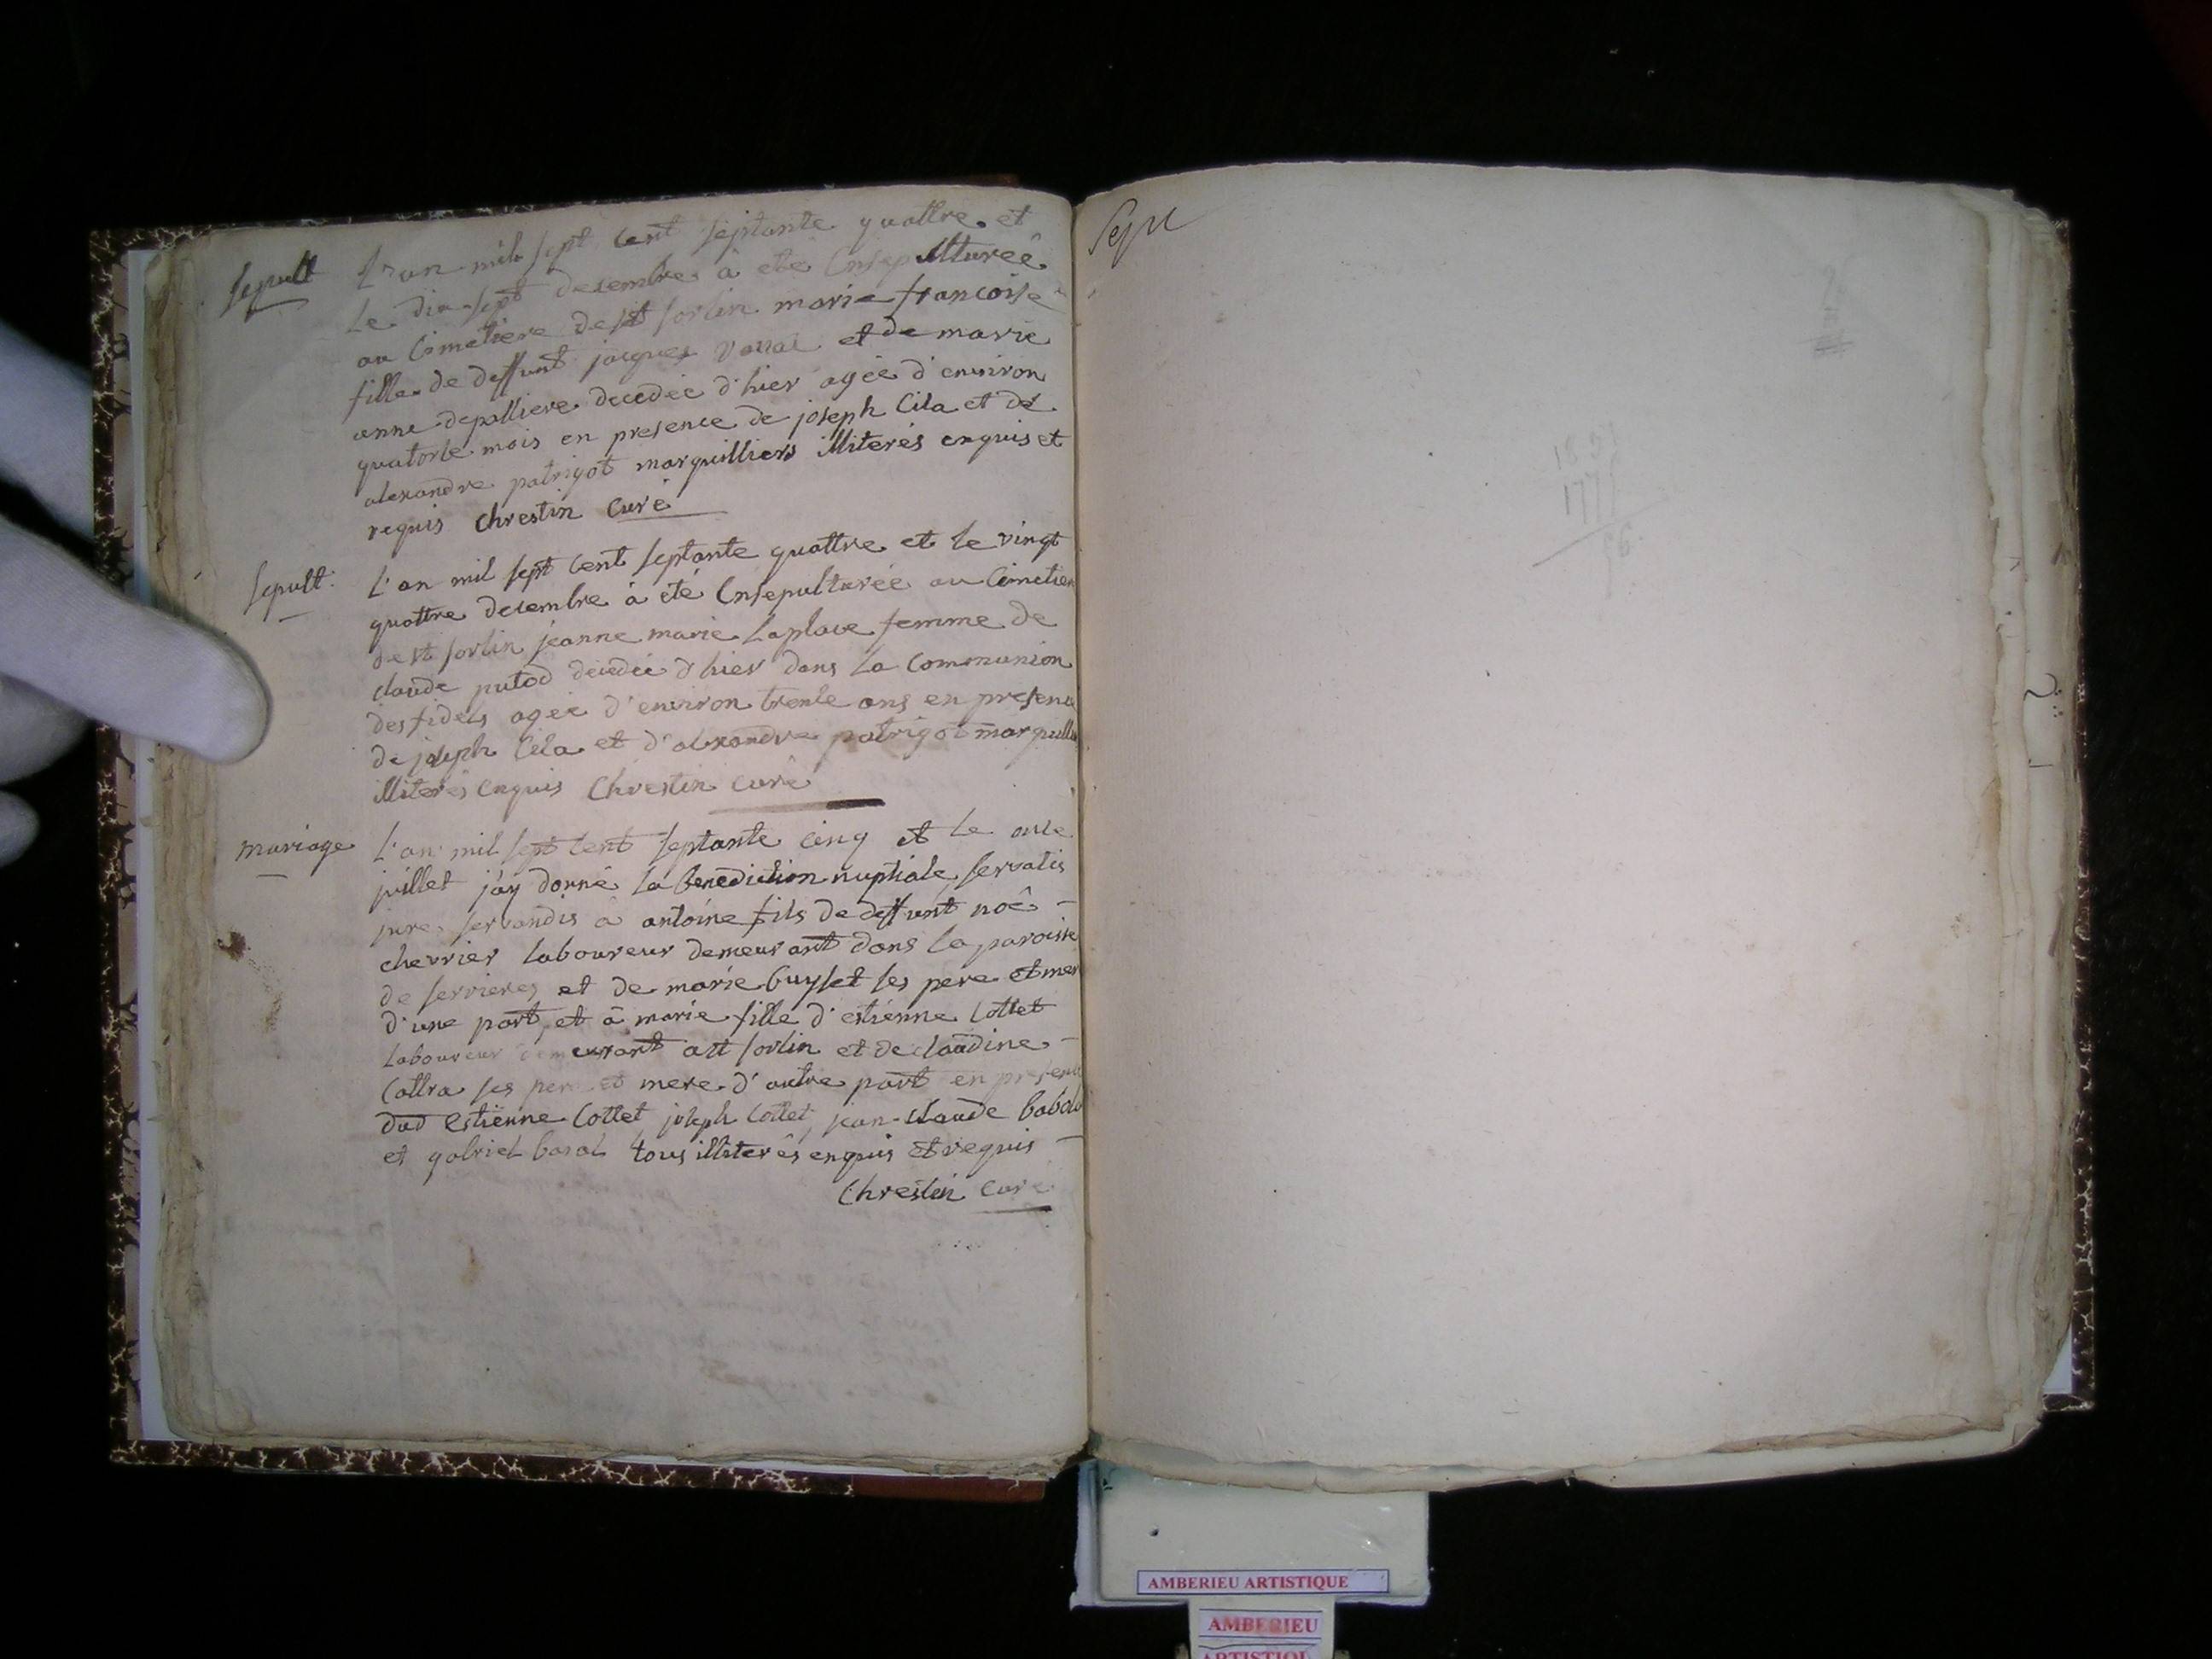 sepult L'an mil sept cent septante quattre et
le dix-sept decembre à eté Ensepultureê
au Cimetiere de st sorlin marie francoise
fille de deffunt jacques et de marie
anne depalliere decedée d'hier agée d'environ
quatorse mois en presence de joseph Cila et de
alexandre patrigot marguilliers illiterés enquis et
requis Chrestin Curé
sepult. L'an mil sept cent septante quattre et le vingt
quattre decembre à été Ensepulturée au Cimetier
de st sorlin jeanne marie Laplace femme de
claude putod decedée d'hier dans la Communion
des fidels agée d'environ trente ans en presence
de joseph Cila et d'alexandre patrigot marguilli
illiterés Enquis Chrestin curé
mariage L'an mil sept cent septante cinq et le onse
juillet j'ay donné la benediction nuptiale servatis
jure servandis à antoine fils de deffunt noê
chevrier laboureur demeurant dans la paroisse
de servieres et de marie buyset ses pere et mer
d'une part, et à marie fille d'estienne Collet
laboureur demeurant a st sorlin et de claudine
Cottra ses pere et mere d'autre part en presence
dud Estienne Collet, joseph Collet, jean-claude babol
et gabriel basal tous illiterês enquis et requis
Chrestin Curé
Sepu
1771
AMBERIEU ARTISTIQUE
AMBERIEU
ARTISTIQU